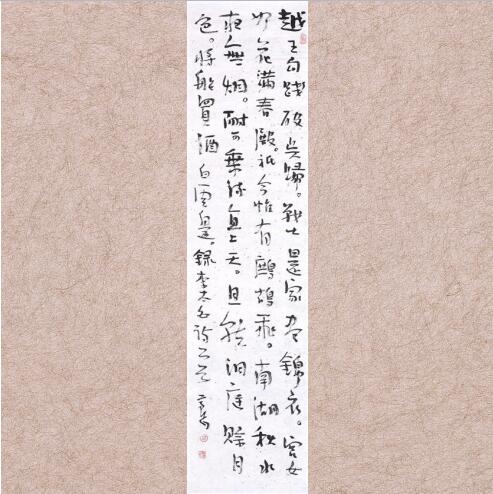 越王勾踐破吳歸。戰士還家盡錦衣。宮女
如花滿春殿。祇今惟有鷓鴣飛。南湖秋水
夜無烟。耐可乘流直上天。且就洞庭賒月
色。將船買酒白雲邊。錄李太白詩二首